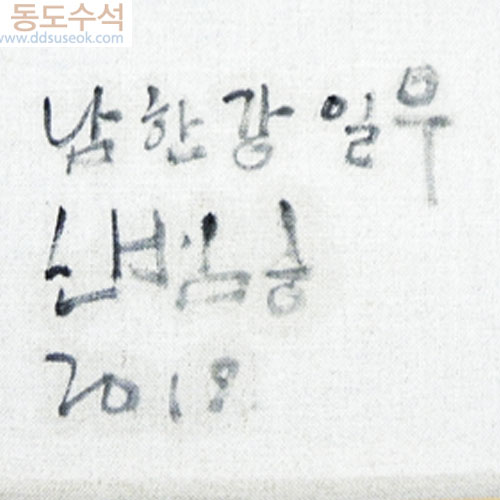 동도수석
www.ddsuseok.com
남한강 일우
2018.